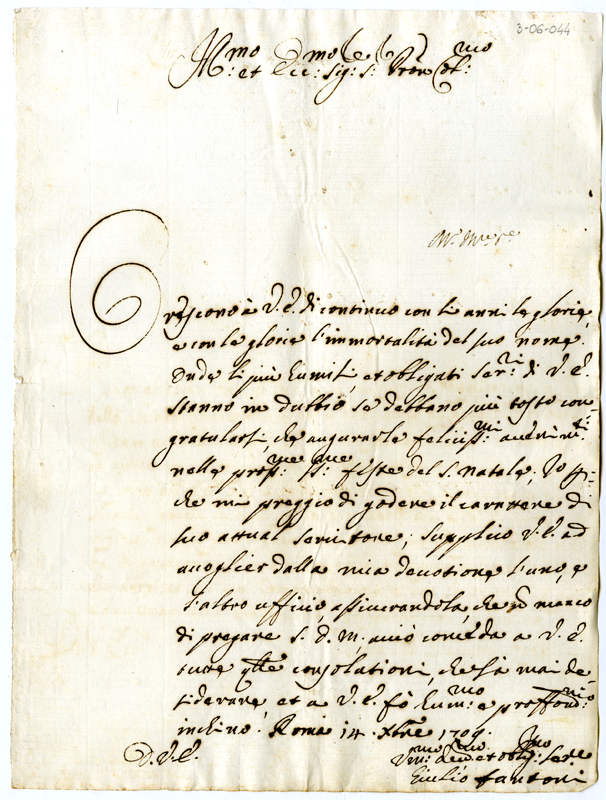 3-06-044
Ill:mo et Ecc:mo Sig:r S:r Pron Col:mo
Crescono à V.E. di continuo con li anni le glorie,
e con le glorie l'immortalità del suo nome.
Onde li più humili, et obligati Ser:ri di V.E.
stanno in dubbio, se debbano più tosto con-
gratularsi, che augurarle feliciss:mi avenim:ti
nelle pross:me SS:me feste del S. Natale, Io pe-
che mi preggio di godere il carattere di
suo attual servitore; supplico V.E. ad
accoglier dalla mia devotione l'uno, e
l'altro ufficio, assicurandola, che ñ manco
di pregare S. D. M. acciò conceda a V.E.
tutte qlle consolationi, che sà mai de-
siderare, et a V.E. fò hum:mo e proffond:mo
inchino. Roma 14. Xbre 1709.
D.V.E.
Um:mo Dev:mo et oblig:mo Ser:re
Giulio Fantoni